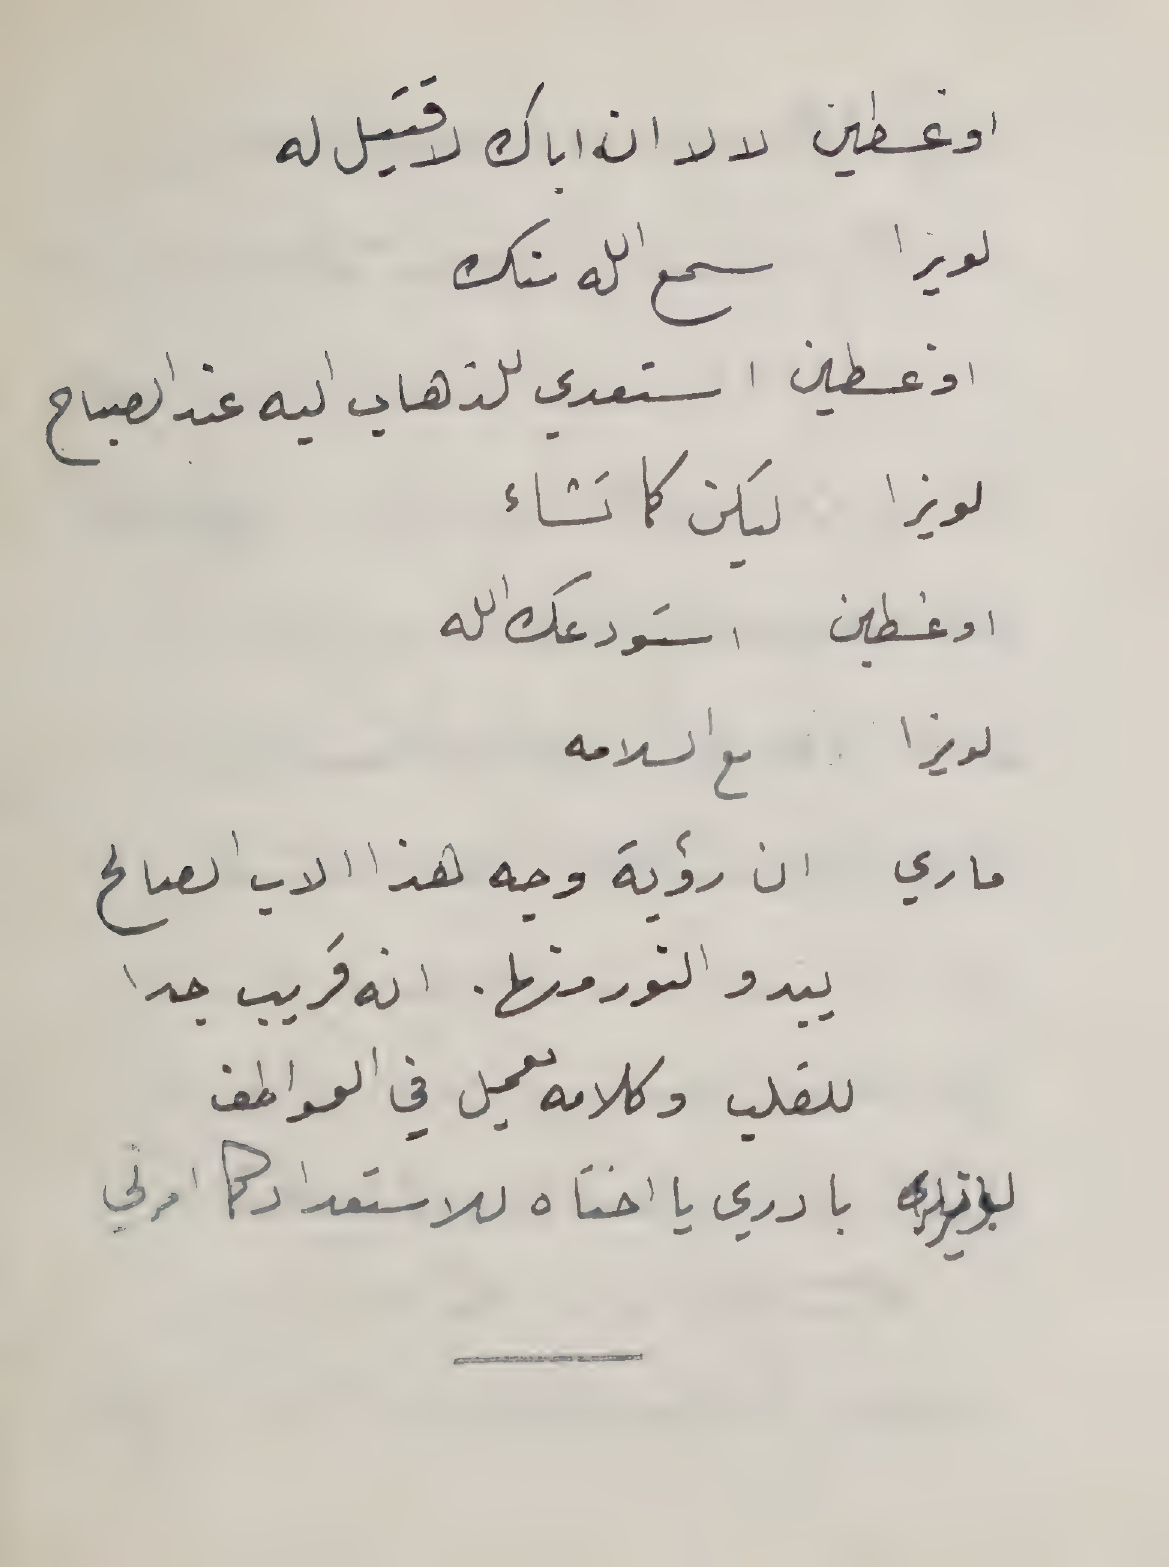 اوغسطين لا لا ان اباك لا قتيل له
لويزا سمع الله منك
اوغسطين استعدي للذهاب اليه عند الصباح
لويزا ليكن كما تشاء
اوغسطين استودعك الله
لويزا مع السلامه
ماري ان رؤية وجه هذا الاب الصالح
يبدو النور منها. انه قريب جدا
للقلب وكلامه يعمل في العواطف
بادري يا اختاه للاستعداد كما امرني